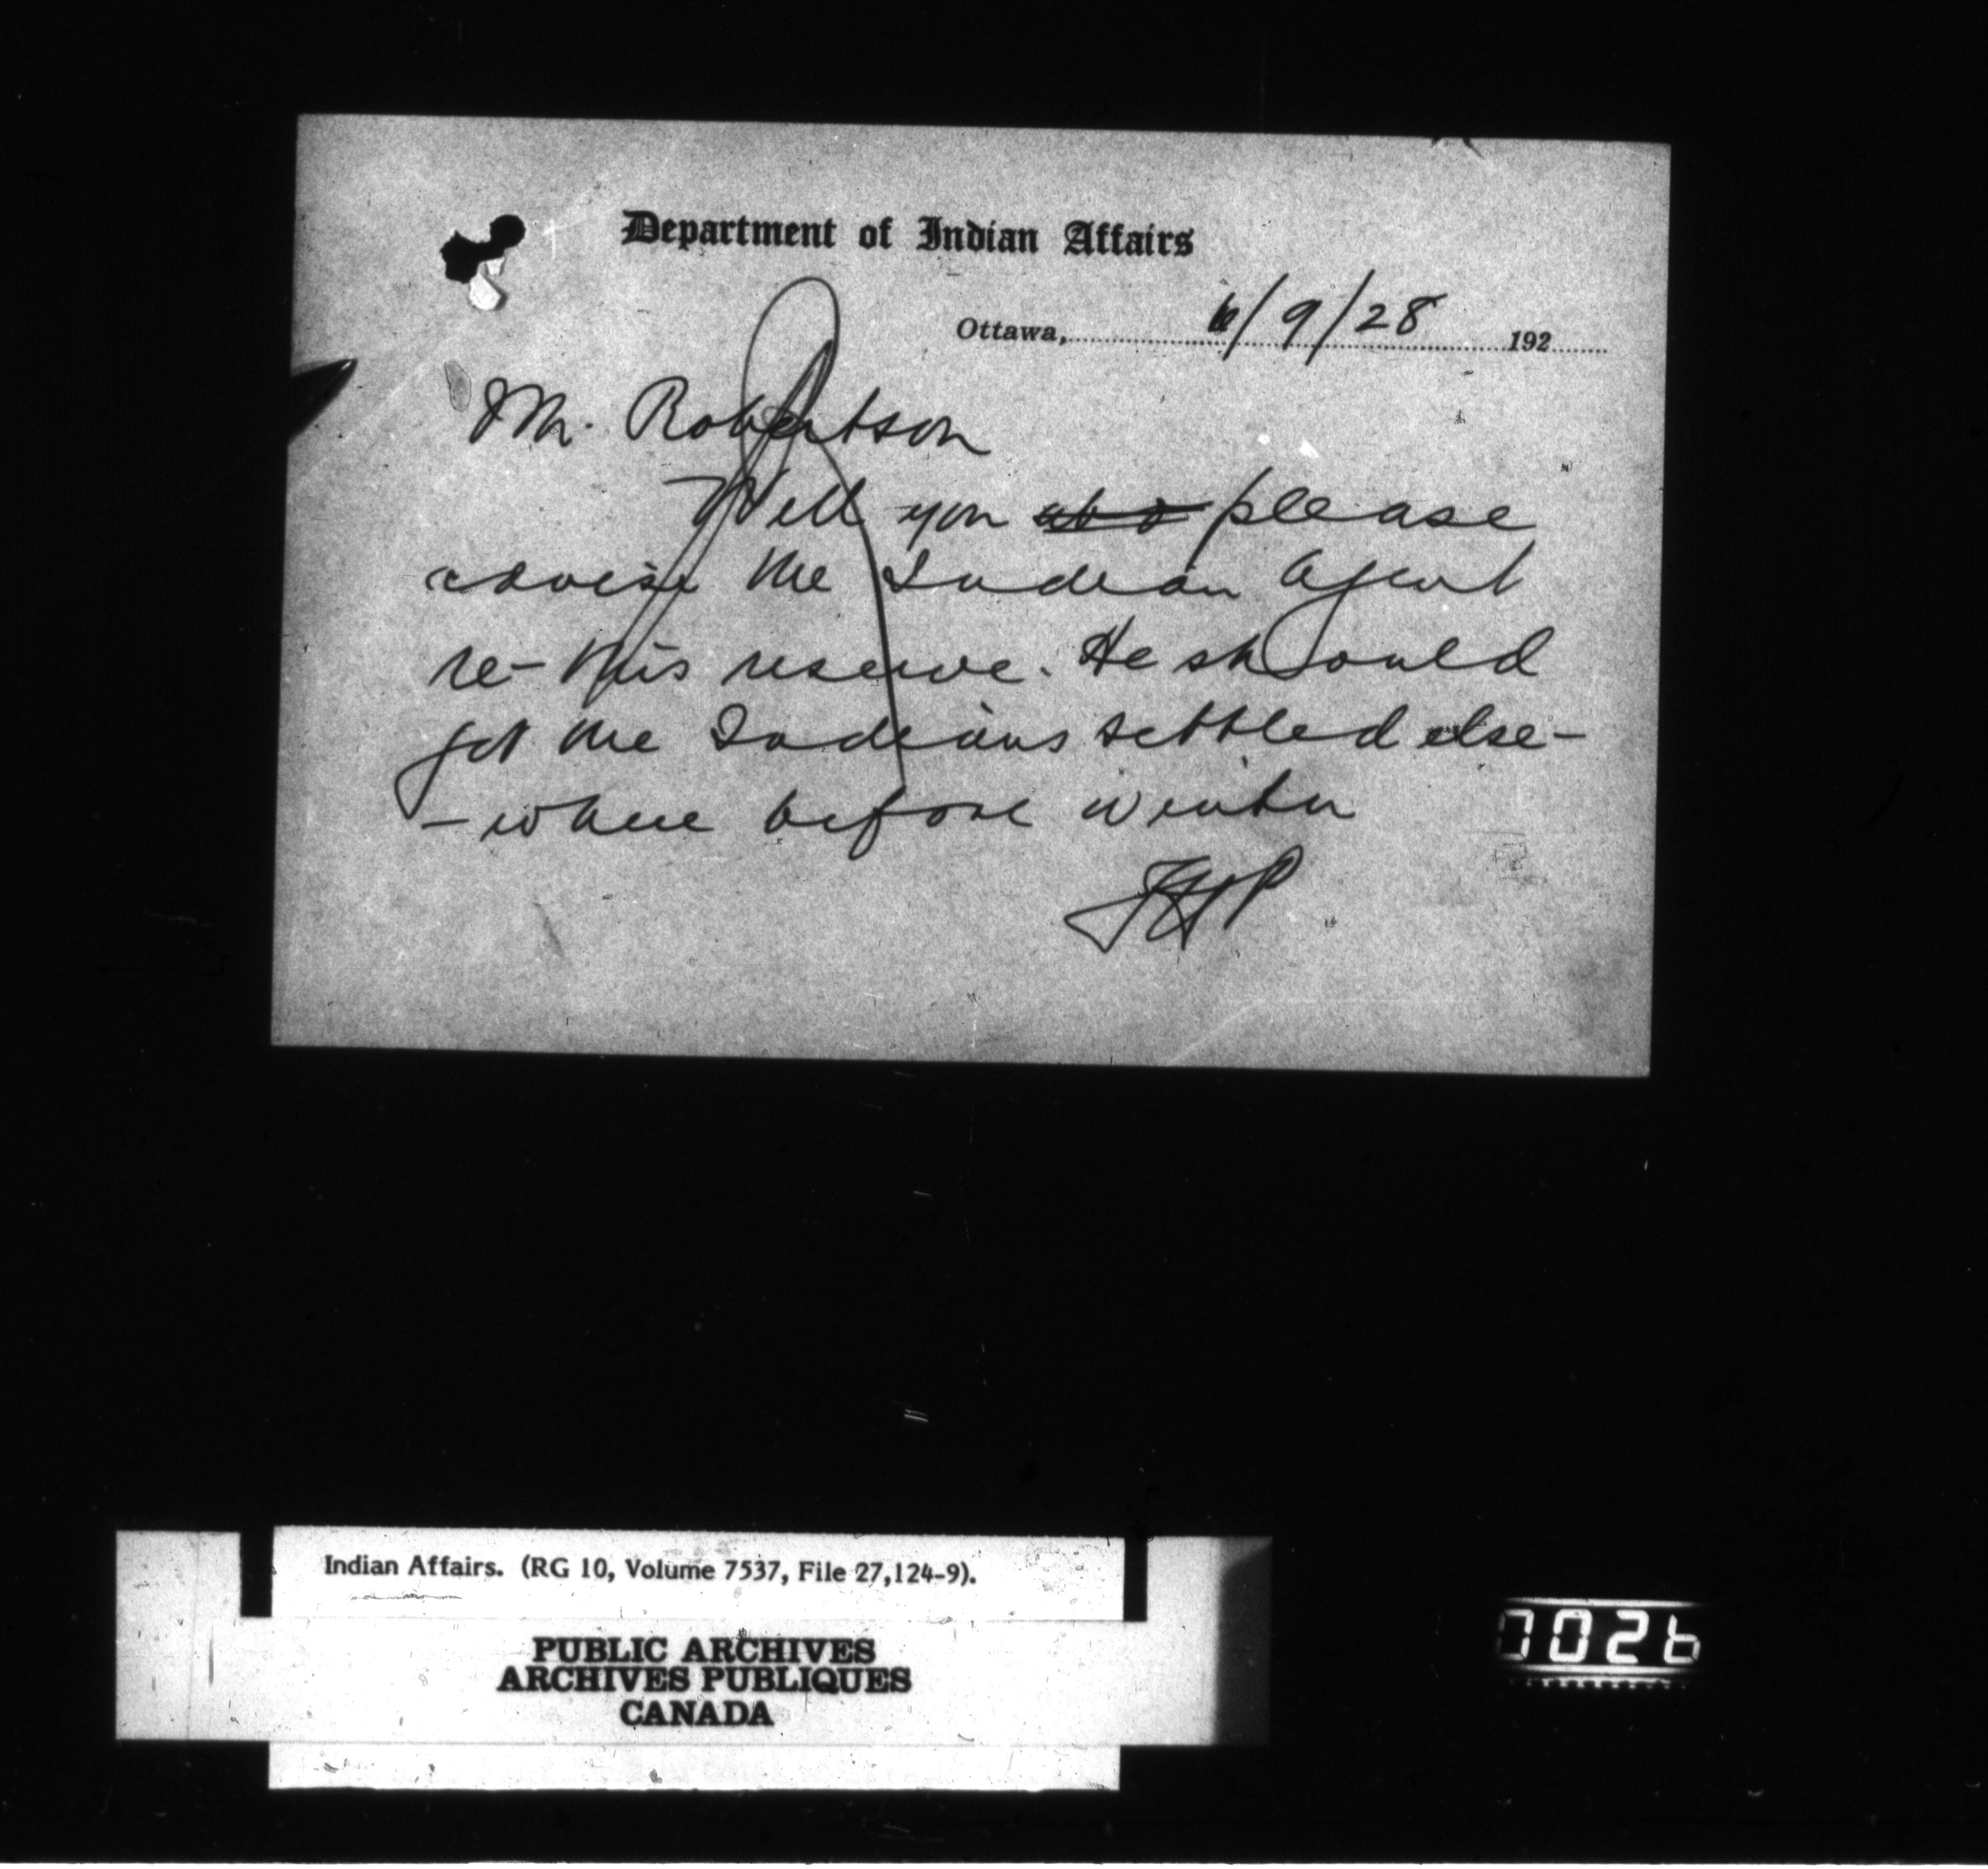 Department of Indian Affairs
Ottawa, 6/9/28 192
Mr. Robertson
Will you please
advise the Indian Agent
re- this reserve. He should
get the Indians settled else-
- where before winter
Indian Affairs. (RG 10, Volume 7537, File 27,124-9).
PUBLIC ARCHIVES
ARCHIVES PUBLIQUES
CANADA
0026